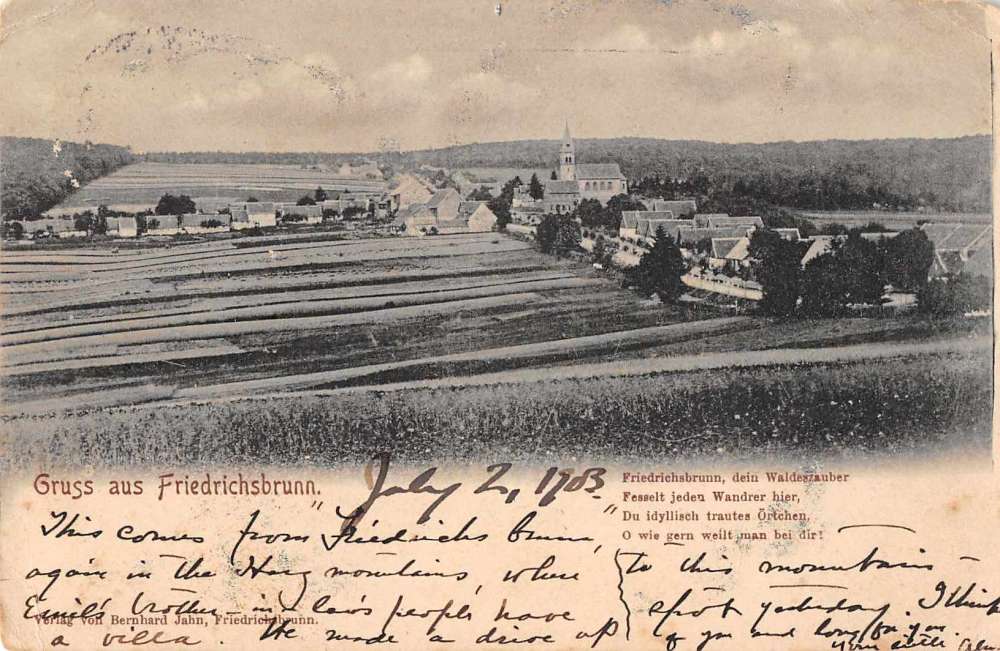 Gruss aus Friedrichsbrunn.
July 2, 1903.
Friedrichsbrunn, dein Waldeszauber
Fesselt jeden Wandrer hier,
Du idyllisch trautes Örtchen,
O wie gern weilt man bei dir!
This comes from "Friedrichs brunn,"
again in the Harz mountains, where
Emil's brother-in-law's people have
a villa. We made a drive up
to this mountain-
spot yesterday. I think
of you and long for you.
Verlag von Bernhard Jahn, Friedrichsbrunn.